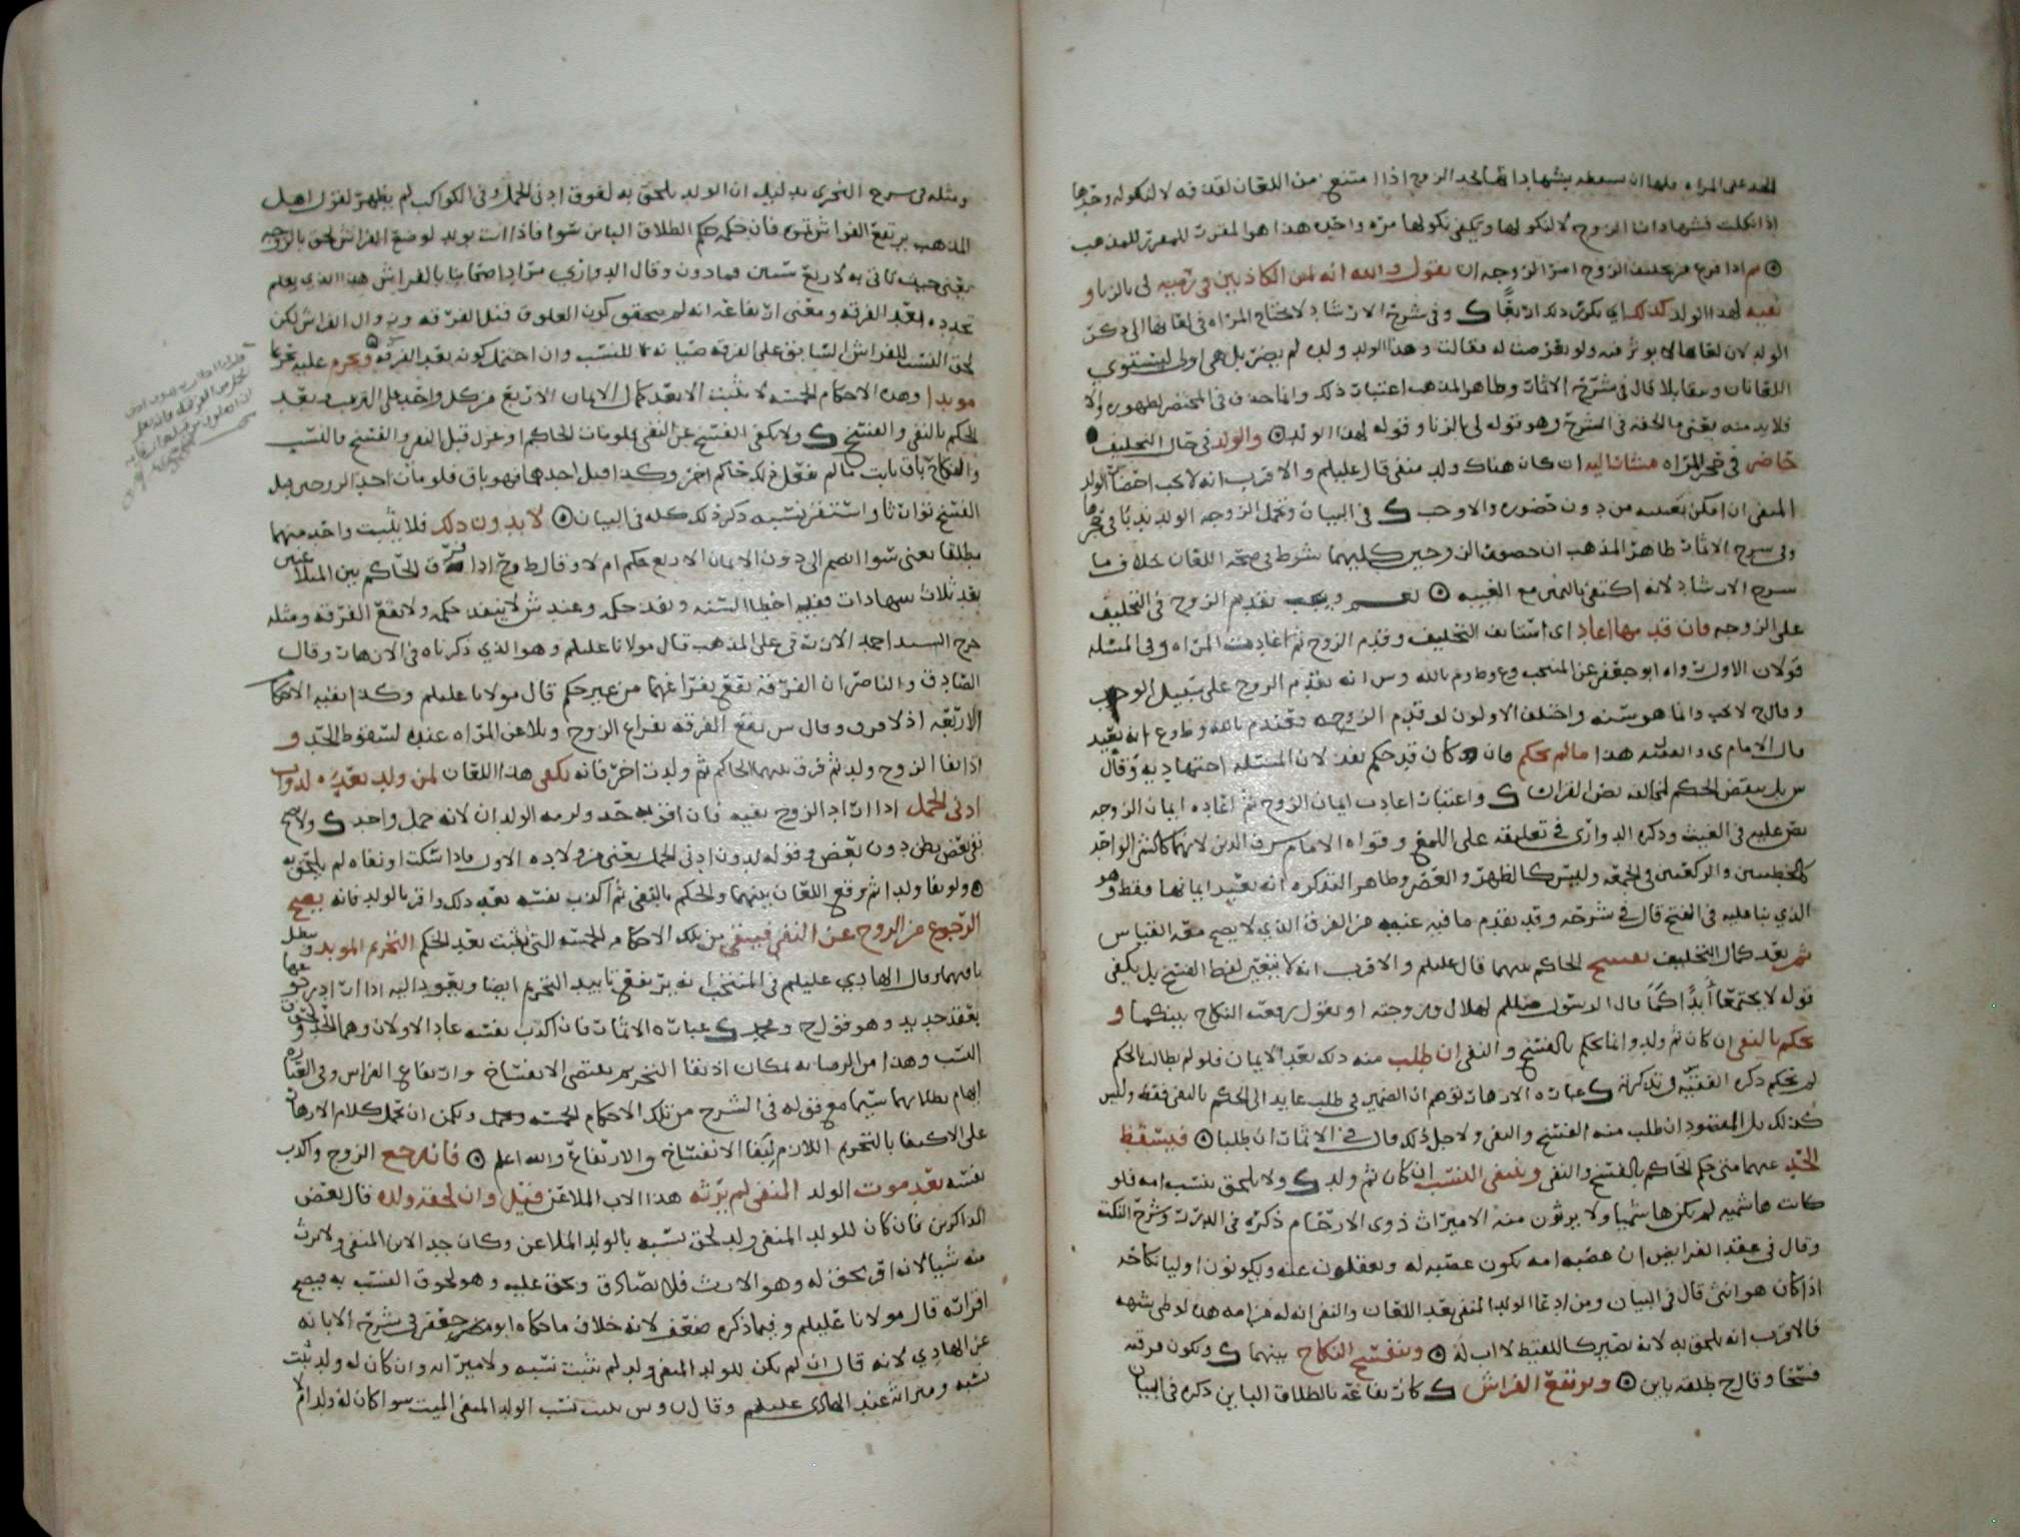 الحد على المراه فلها ان تسقطه بشهاداتها لحد الزوج اذا امتنع من اللعان لقذفه لا لنكوله وحدها
اذا نكلت فشهادات الزوج لا لنكولها ويكفي نكولها مره واحده هذا هو المقرر للمذهب
ثم اذا فرغ من تحليف الزوج امر الزوجه ان تقول والله انه لمن الكاذبين في رميه لي بالزنا و
نفيه لهذا الولد كذلك اي تكرر ذلك اربعا ك وفي شرح الاثمار لا تحتاج المراه في لعانها الى ذكر
الولد لان لعانها لا يوثر فيه ولو تعرضت له فقالت وهذا الولد ولده لم يضر بل هي اولى ليستوي
اللعانان ويتقابلا قال في شرح الاثمار وظاهر المذهب اعتبار ذلك وانما حذف في المختصر لظهوره والا
فلا بد منه يعني ما الحقه في الشرح وهو قوله لي بالزنا وقوله لهذا الولد والولد في حال التحليف
حاضر في حجر المراه مشارا اليه ان كان هناك ولد منفي قال عليلم والاقرب انه لا يجب احضار الولد
المنفي ان امكن تعيينه من دون حضوره والا وجب ك في البيان وتحمل الزوجه الولد ندبا في حجرها
وفي شرح الاثمار ظاهر المذهب ان حضور الزوجين كليهما شرط في صحة اللعان خلاف ما
شرح الارشاد لانه اكتفى باليمين مع الغيبه نعم ويجب تقديم الزوج في التحليف
على الزوجه فان قدمها اعاد اي استانف التحليف وقدم الزوج ثم اعادت المراه وفي المسئله
قولان الاول رواه ابو جعفر عن المنتخب وع وط وم بالله وس انه تقديم الزوج على سبيل الوجوب
وقال ح لا يجب وانما هو سنه واختلف الاولون لو قدم الزوجه فعند م بالله وط وع انه يعيد
قال الامام ي والفقيه هذا ما لم يحكم فان كان قد حكم نفذ لان المسئله اجتهاديه وقال
س بل ينقض الحكم لمخالفته نص القران ك واعتبار اعادت ايمان الزوج ثم اعاده ايمان الزوجه
نص عليه في الغيث وذكره الدواري في تعليقه على اللمع وقواه الامام شرف الدين لانهما كالشي الواحد
كالخطبتين والركعتين في الجمعه وليس كالظهر والعصر وظاهر التذكره انه يعيد ايمانها فقط وهو
الذي بنا عليه في الفتح قال في شرحه وقد تقدم ما فيه عنيه من الفرق الذي لا يصح معه القياس
ثم بعد كمال التحليف يفسخ الحاكم بينهما قال عليلم والاقرب انه لا يتعين لفظ الفسخ بل يكفي
قوله لا يجتمعا ابدا كما قال الرسول صللم لهلال وزوجته او يقول رفعت النكاح بينكما و
يحكم بالنفي ان كان ثم ولد وانما يحكم بالفسخ والنفي ان طلب منه ذلك بعد الايمان فلو لم يطالب بالحكم
لم يحكم ذكره الفقيه في تذكرته ك عباره الازهار توهم ان الضمير في طلب عايد الى الحكم بالنفي فقط وليس
كذلك بل المقصود ان طلب منه الفسخ والنفي ولاجل ذلك قال في الاثمار ان طلبا فيسقط
الحد عنهما متى حكم الحاكم بالفسخ والنفي وينتفي النسب ان كان ثم ولد ك ولا يلحق بنسب امه فلو
كانت هاشميه لم يكن هاشميا ولا يرثون منه الا ميراث ذوي الارحام ذكره في الدرر وشرح النكت
وقال في عقد الفرايض ان عصبه امه يكون عصبه له ويعقلون عنه ويكونون اوليا نكاحه
اذا كان هو انثى قال في البيان ومن ادعا الولد المنفي بعد اللعان والنفي انه له من امه هذه لوطى شبهه
فالاقرب انه يلحق به لانه يصير كاللقيط لا اب له وينفسخ النكاح بينهما ك وتكون فرقته
فسخا وقال ح طلقه باين ويرتفع الفراش ك كارتفاعه بالطلاق الباين ذكره في البيان
ومثله في شرح البحري بدليل ان الولد يلحق به لفوق ادنى الحمل وفي الكواكب لم يظهر لقول اهل
المذهب يرتفع الفراش ثمره فان حكمه حكم الطلاق الباين سوا فاذا اتت بولد لوضع الفراش لحق بالزوجه
يعني حيث تاتي به لاربع سنين فما دون وقال الدواري مراد اصحابنا بالفراش هذا الذي يعلم
تجدده بعد الفرقه ومعنى ارتفاعه انه لم يتحقق كون العلوق قبل الفرقه وزوال الفراش لكن
لحق النسب للفراش السابق على الفرقه صيانه للنسب وان احتمل كونه بعد الفرقه ويحرم عليه تحريما
موبدا وهذه الاحكام الخمسه لا تثبت الا بعد كمال الايمان الاربع من كل واحد على الترتيب وبعد
الحكم بالنفي والفسخ ك ولا يكفي الفسخ عن النفي فلو مات الحاكم او عزل قبل النفي والفسخ فالنسب
والنكاح باق ثابت ما لم يفعل ذلك حاكم اخر وكذا قبل احدهما فهو باق فلو مات احد الزوجين قبل
الفسخ توارثا واستقر نسبه ذكر ذلك كله في البيان لا بدون ذلك فلا يثبت واحد منهما
مطلقا يعني سوا انضم الى دون الايمان الاربع حكم ام لا وقال ط وح اذا فرق الحاكم بين المتلاعنين
بعد ثلاث شهادات فقد اخطا السنه ونفذ حكمه وعند ش لا ينفذ حكمه ولا تقع الفرقه ومثله
خرج السيد احمد الازرقي على المذهب قال مولانا عليلم وهو الذي ذكرناه في الازهار وقال
الصادق والناصر ان الفرقه تقع بفراغهما من غير حكم قال مولانا عليلم وكذا بقيه الاحكام
الاربعه اذ لا فرق وقال س تقع الفرقه بفراغ الزوج ويلاعن المراه عنده لسقوط الحد و
اذا نفا الزوج ولد ثم فرق بينهما الحاكم ثم ولدت اخر فانه يكفي هذا اللعان لمن ولد بعده لدون
ادنى الحمل اذا اراد الزوج نفيه فان اقر به حد ولزمه الولدان لانه حمل واحد ك ولا يصح
نفي بعض بطن دون بعض وقوله لدون ادنى الحمل يعني من ولاده الاول فاذا سكت او نفاه لم يلحق به
ولو نفا ولدا ثم وقع اللعان بينهما والحكم بالنفي ثم اكذب نفسه بعد ذلك واقر بالولد فانه يصح
الرجوع من الزوج عن النفي فيبقى من تلك الاحكام الخمسه التي تثبت بعد الحكم التحريم الموبد ويبطل
باقيها وقال الهادي عليلم في المنتخب انه يرتفع تابيد التحريم ايضا ويعود اليه اذا اراد برجوعها
بعقد جديد وهو قول ح ومحمد ك عباره الاثمار فان اكذب نفسه عاد الاولان وهما الحد ولحوق
النسب وهذا من الرصانه بمكان اذ بقا التحريم يقتضي الانفساخ وارتفاع الفراش وفي العباره
ايهام بطلانهما سيما مع قوله في الشرح من تلك الاحكام الخمسه ويمكن ان يحمل كلام الازهار
على الاكتفا بالتحريم اللازم لبقا الانفساخ والارتفاع والله اعلم فان رجع الزوج واكذب
نفسه بعد موت الولد المنفي لم يرثه هذا الاب الملاعن قيل وان لحقه ولده قال بعض
الذاكرين فان كان للولد المنفي ولد لحق نسبه بالولد الملاعن وكان جد الابن المنفي ولا يرث
منه شيا لانه اقر بحق له وهو الارث فلا يصادق وبحق عليه وهو لحوق النسب به فيصح
اقراره قال مولانا عليلم وفيما ذكره ضعف لانه خلاف ما حكاه ابو جعفر في شرح الابانه
عن الهادي لانه قال ان لم يكن للولد المنفي ولد لم يثبت نسبه ولا ميراثه وان كان له ولد ثبت
نسبه وميراثه عند الهادي عليلم وقال ن وس يثبت نسب الولد المنفي الميت سوا كان له ولد ام لا